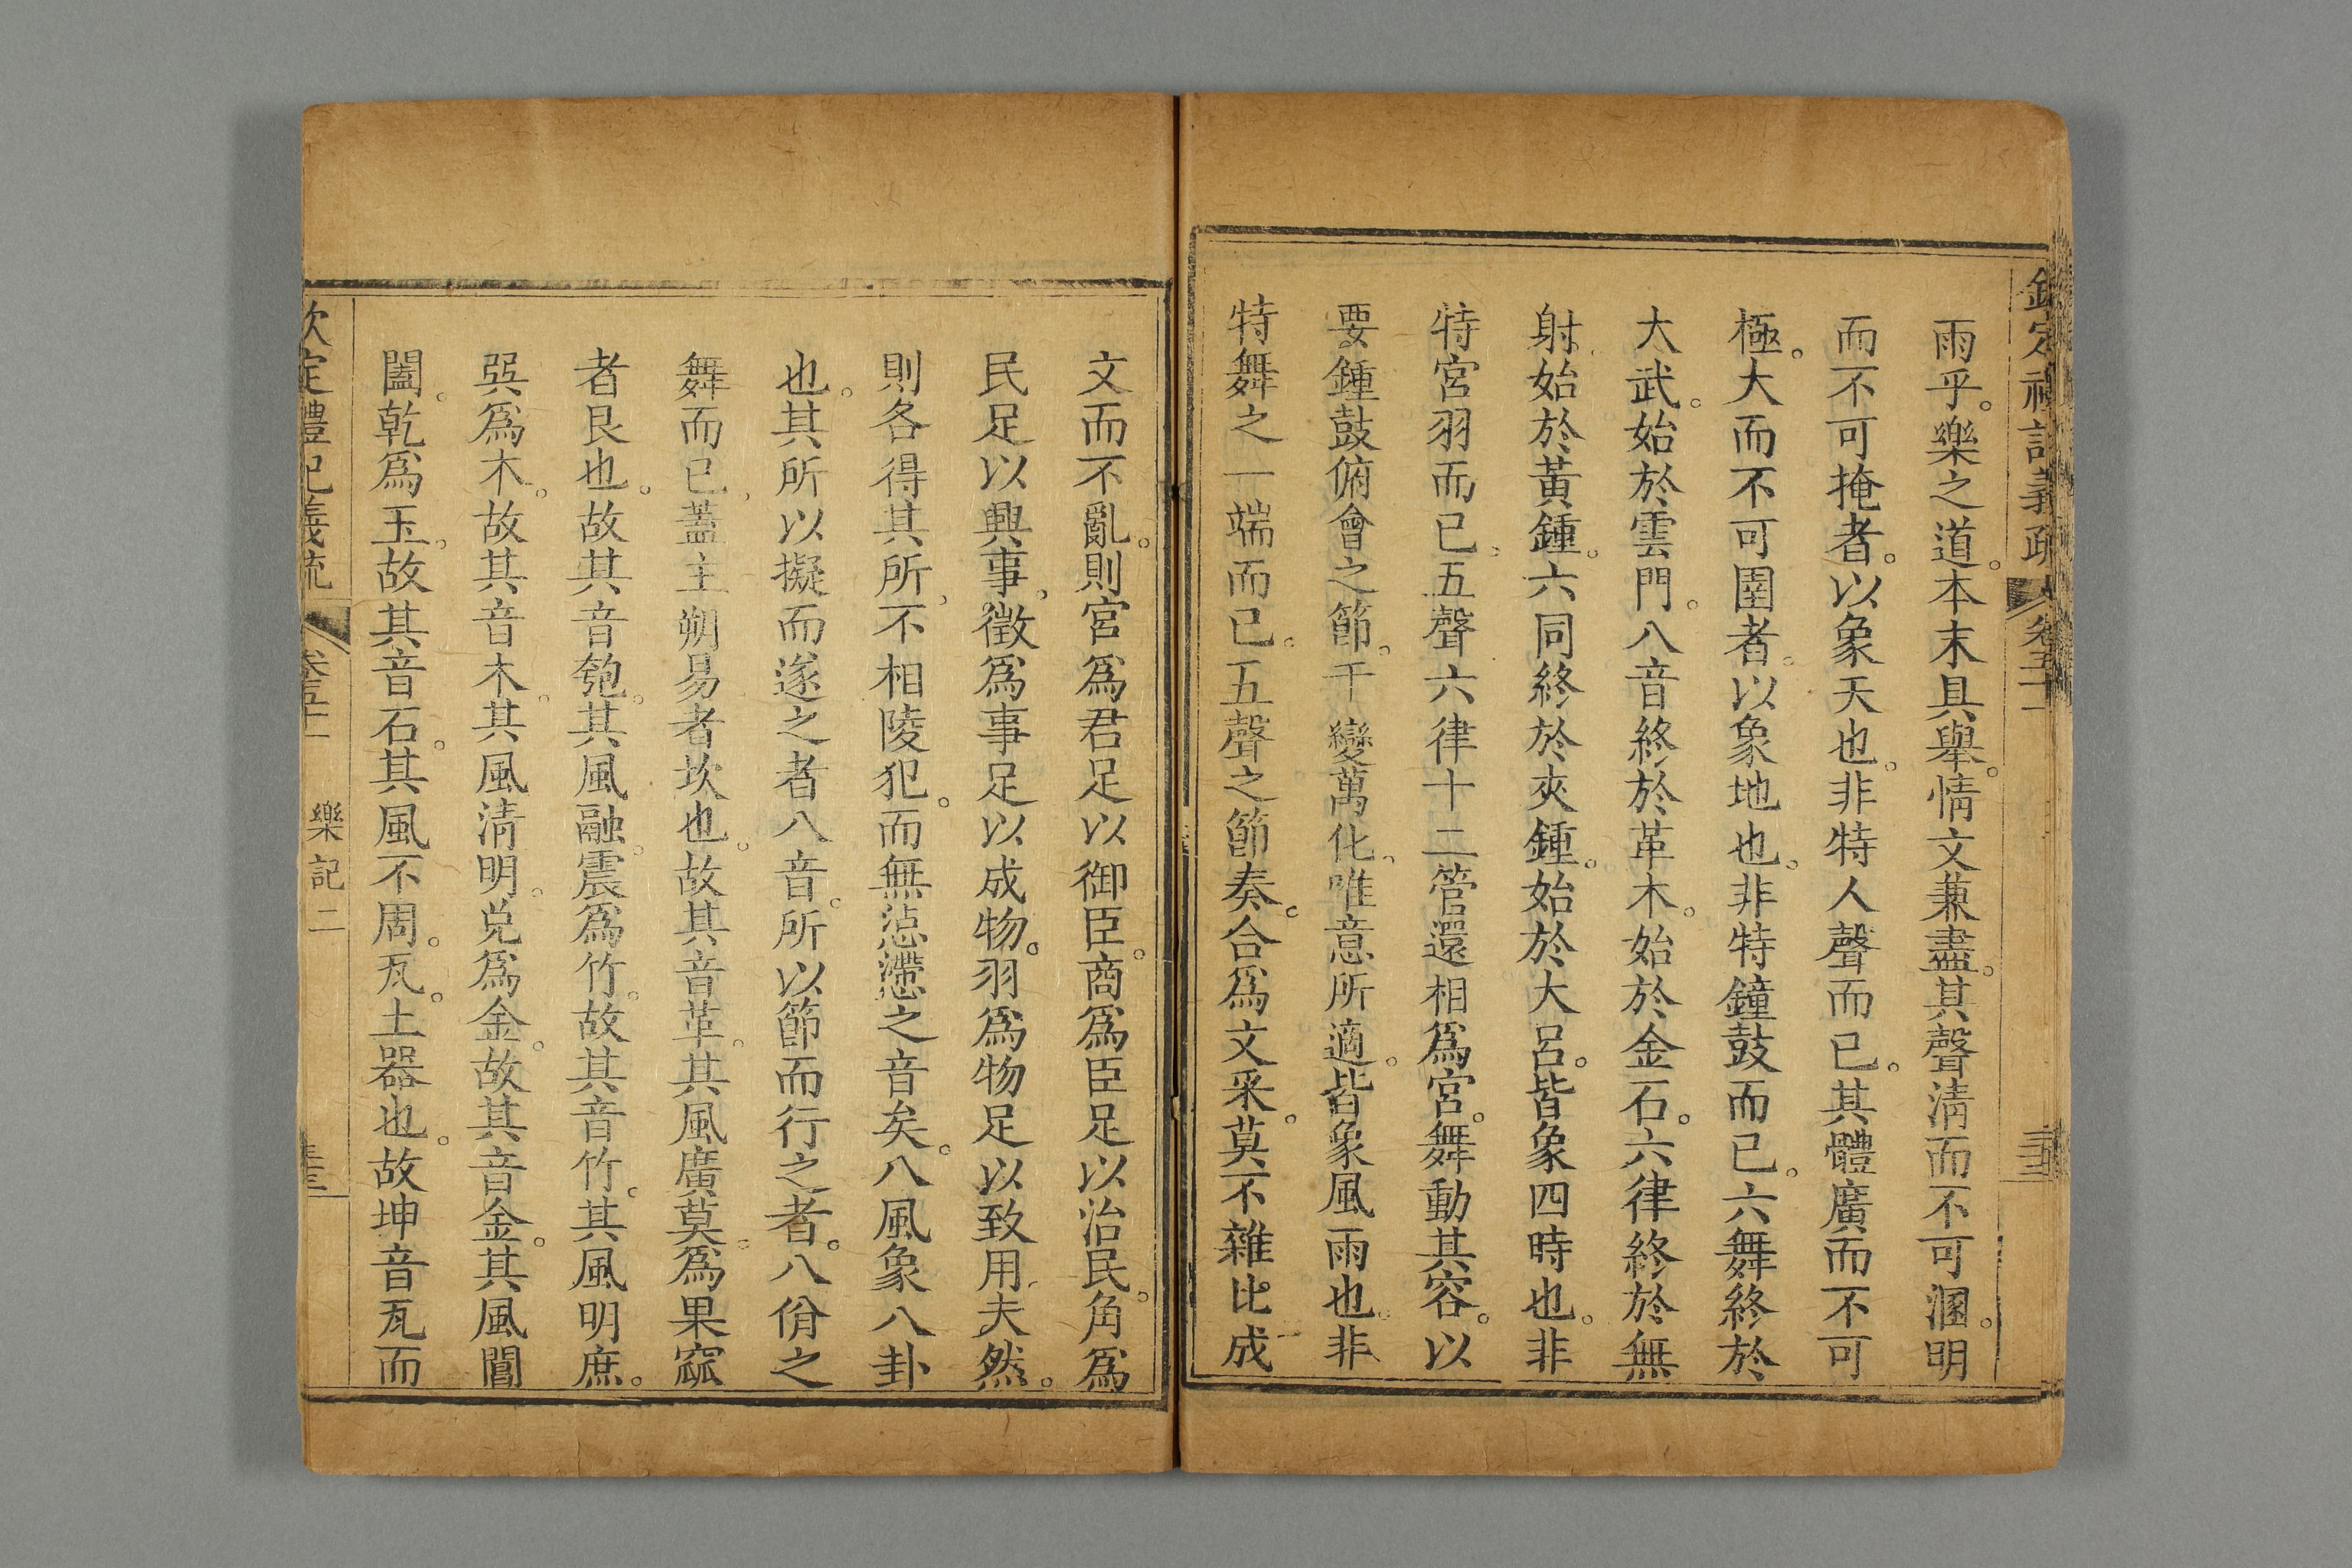 欽定禮記義疏 卷五十一
雨乎。樂之道。本末具舉。情文兼盡。其聲淸而不可溷。明
而不可掩者。以象天也。非特人聲而已。其體廣而不可
極。大而不可圉者。以象地也。非特鐘鼓而已。六舞終於
大武。始於雲門。八音終於革木。始於金石。六律終於無
射。始於黃鍾。六同終於夾鍾。始於大呂。皆象四時也。非
特宮羽而已。五聲六律十二管還相爲宮。舞動其容。以
要鍾鼓俯會之節。千變萬化。唯意所適。皆象風雨也。非
特舞之一端而已。五聲之節奏。合爲文采。莫不雜比成
文而不亂。則宮爲君足以御臣。商爲臣足以治民。角爲
民足以興事。徵爲事足以成物。羽爲物足以致用。夫然。
則各得其所。不相陵犯。而無惉懘之音矣。八風象八卦
也。其所以擬而遂之者八音。所以節而行之者。八佾之
舞而已。蓋主朔易者坎也。故其音革。其風廣莫。爲果窳
者艮也。故其音匏。其風融。震爲竹。故其音竹。其風明庶。
巽爲木。故其音木。其風淸明。兌爲金。故其音金。其風閶
闔。乾爲玉。故其音石。其風不周。瓦。土器也。故坤音瓦而
欽定禮記義疏 卷五十一 樂記二